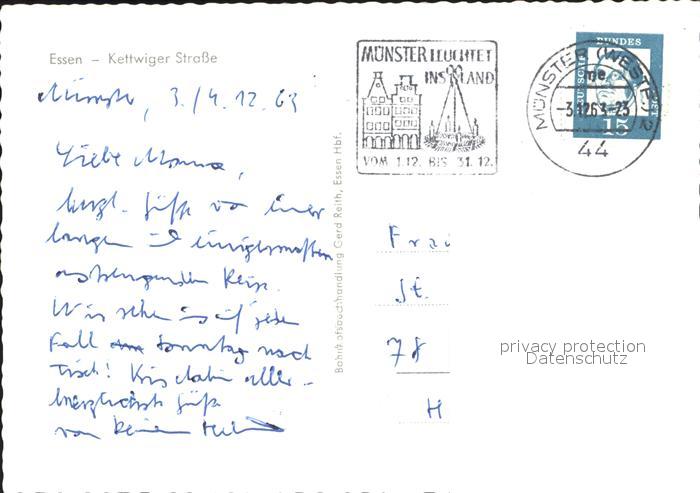 Essen – Kettwiger Straße
Münster, 3./4.12.63
Liebe Mama,
herzl. Grüße von einer
langen und einigermaßen
anstrengenden Reise.
Wir sehen uns auf jeden
Fall Sonntag nach
Tisch! Bis dahin aller-
herzlichst Grüße
von Deinem
Bahnhofsbuchhandlung Gerd Reith, Essen Hbf.
MÜNSTER LEUCHTET
INS LAND
VOM 1.12. BIS 31.12.
MÜNSTER (WESTF) 2
me
-3.1263-23
44
BUNDES
15
Frau
St.
78
H
privacy protection
Datenschutz